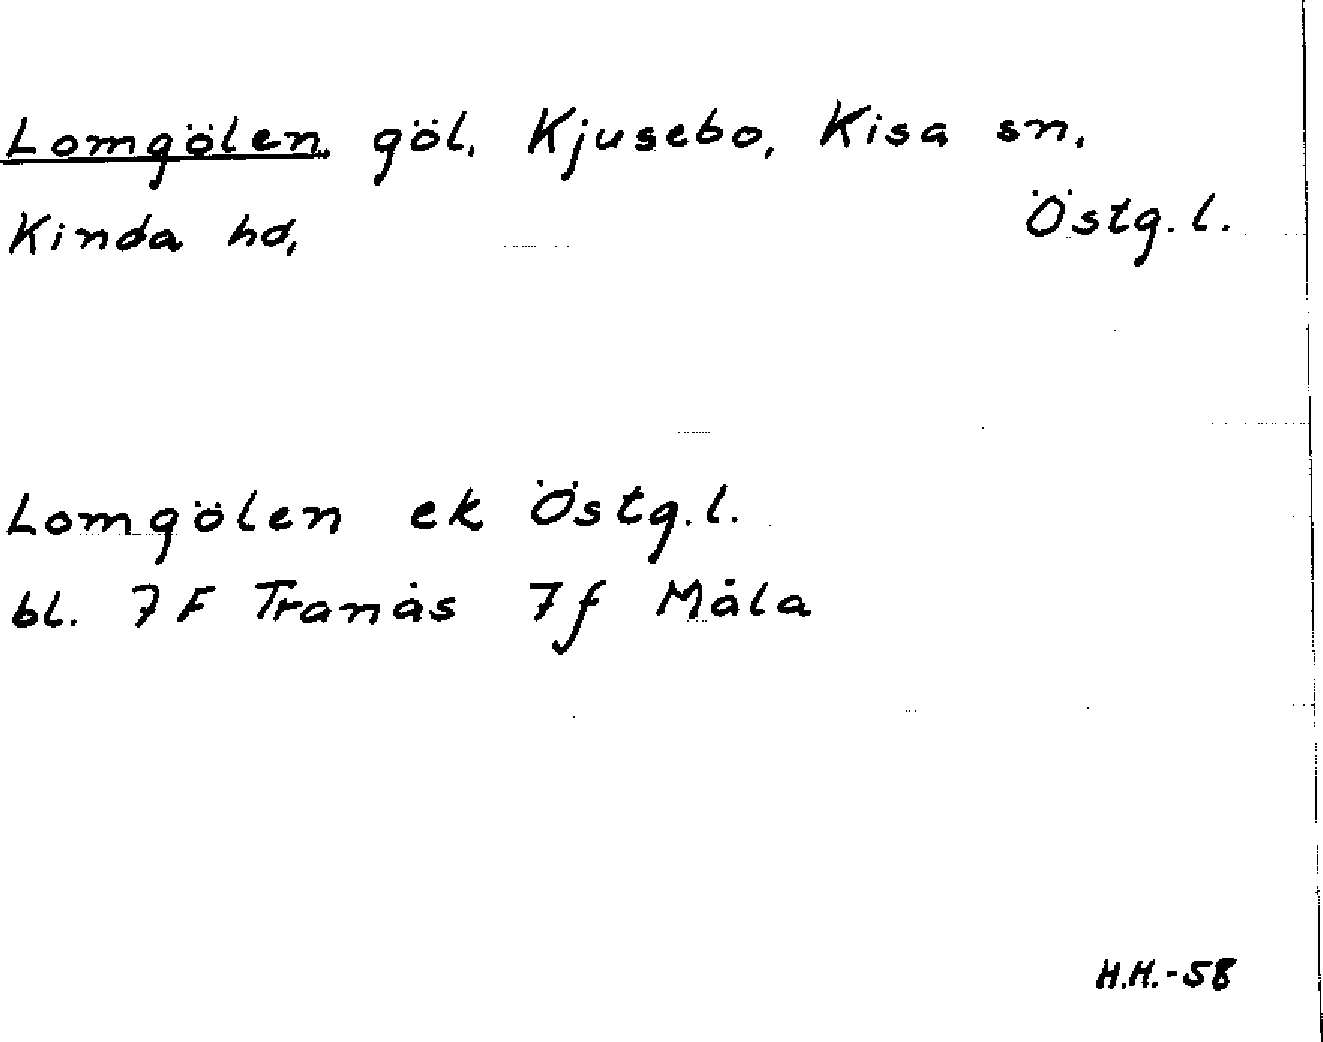 Lomgölen, göl, Kjusebo, Kisa sn,
Kinda hd, Östg. l.
Lomgölen ek Östg. l.
bl. 7F Tranås 7f Måla
H.H.-58